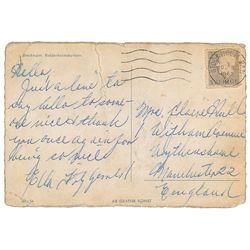 Stockholm. Riddarholmskyrkan.
Hello,
Just a line to
say hello to some-
one nice & thank
you once again for
being so nice
Ella Fitzgerald
Mrs.
1 Witham Avenue
Wythenshawe
Manchester 22
England
AB GRAFISK KONST